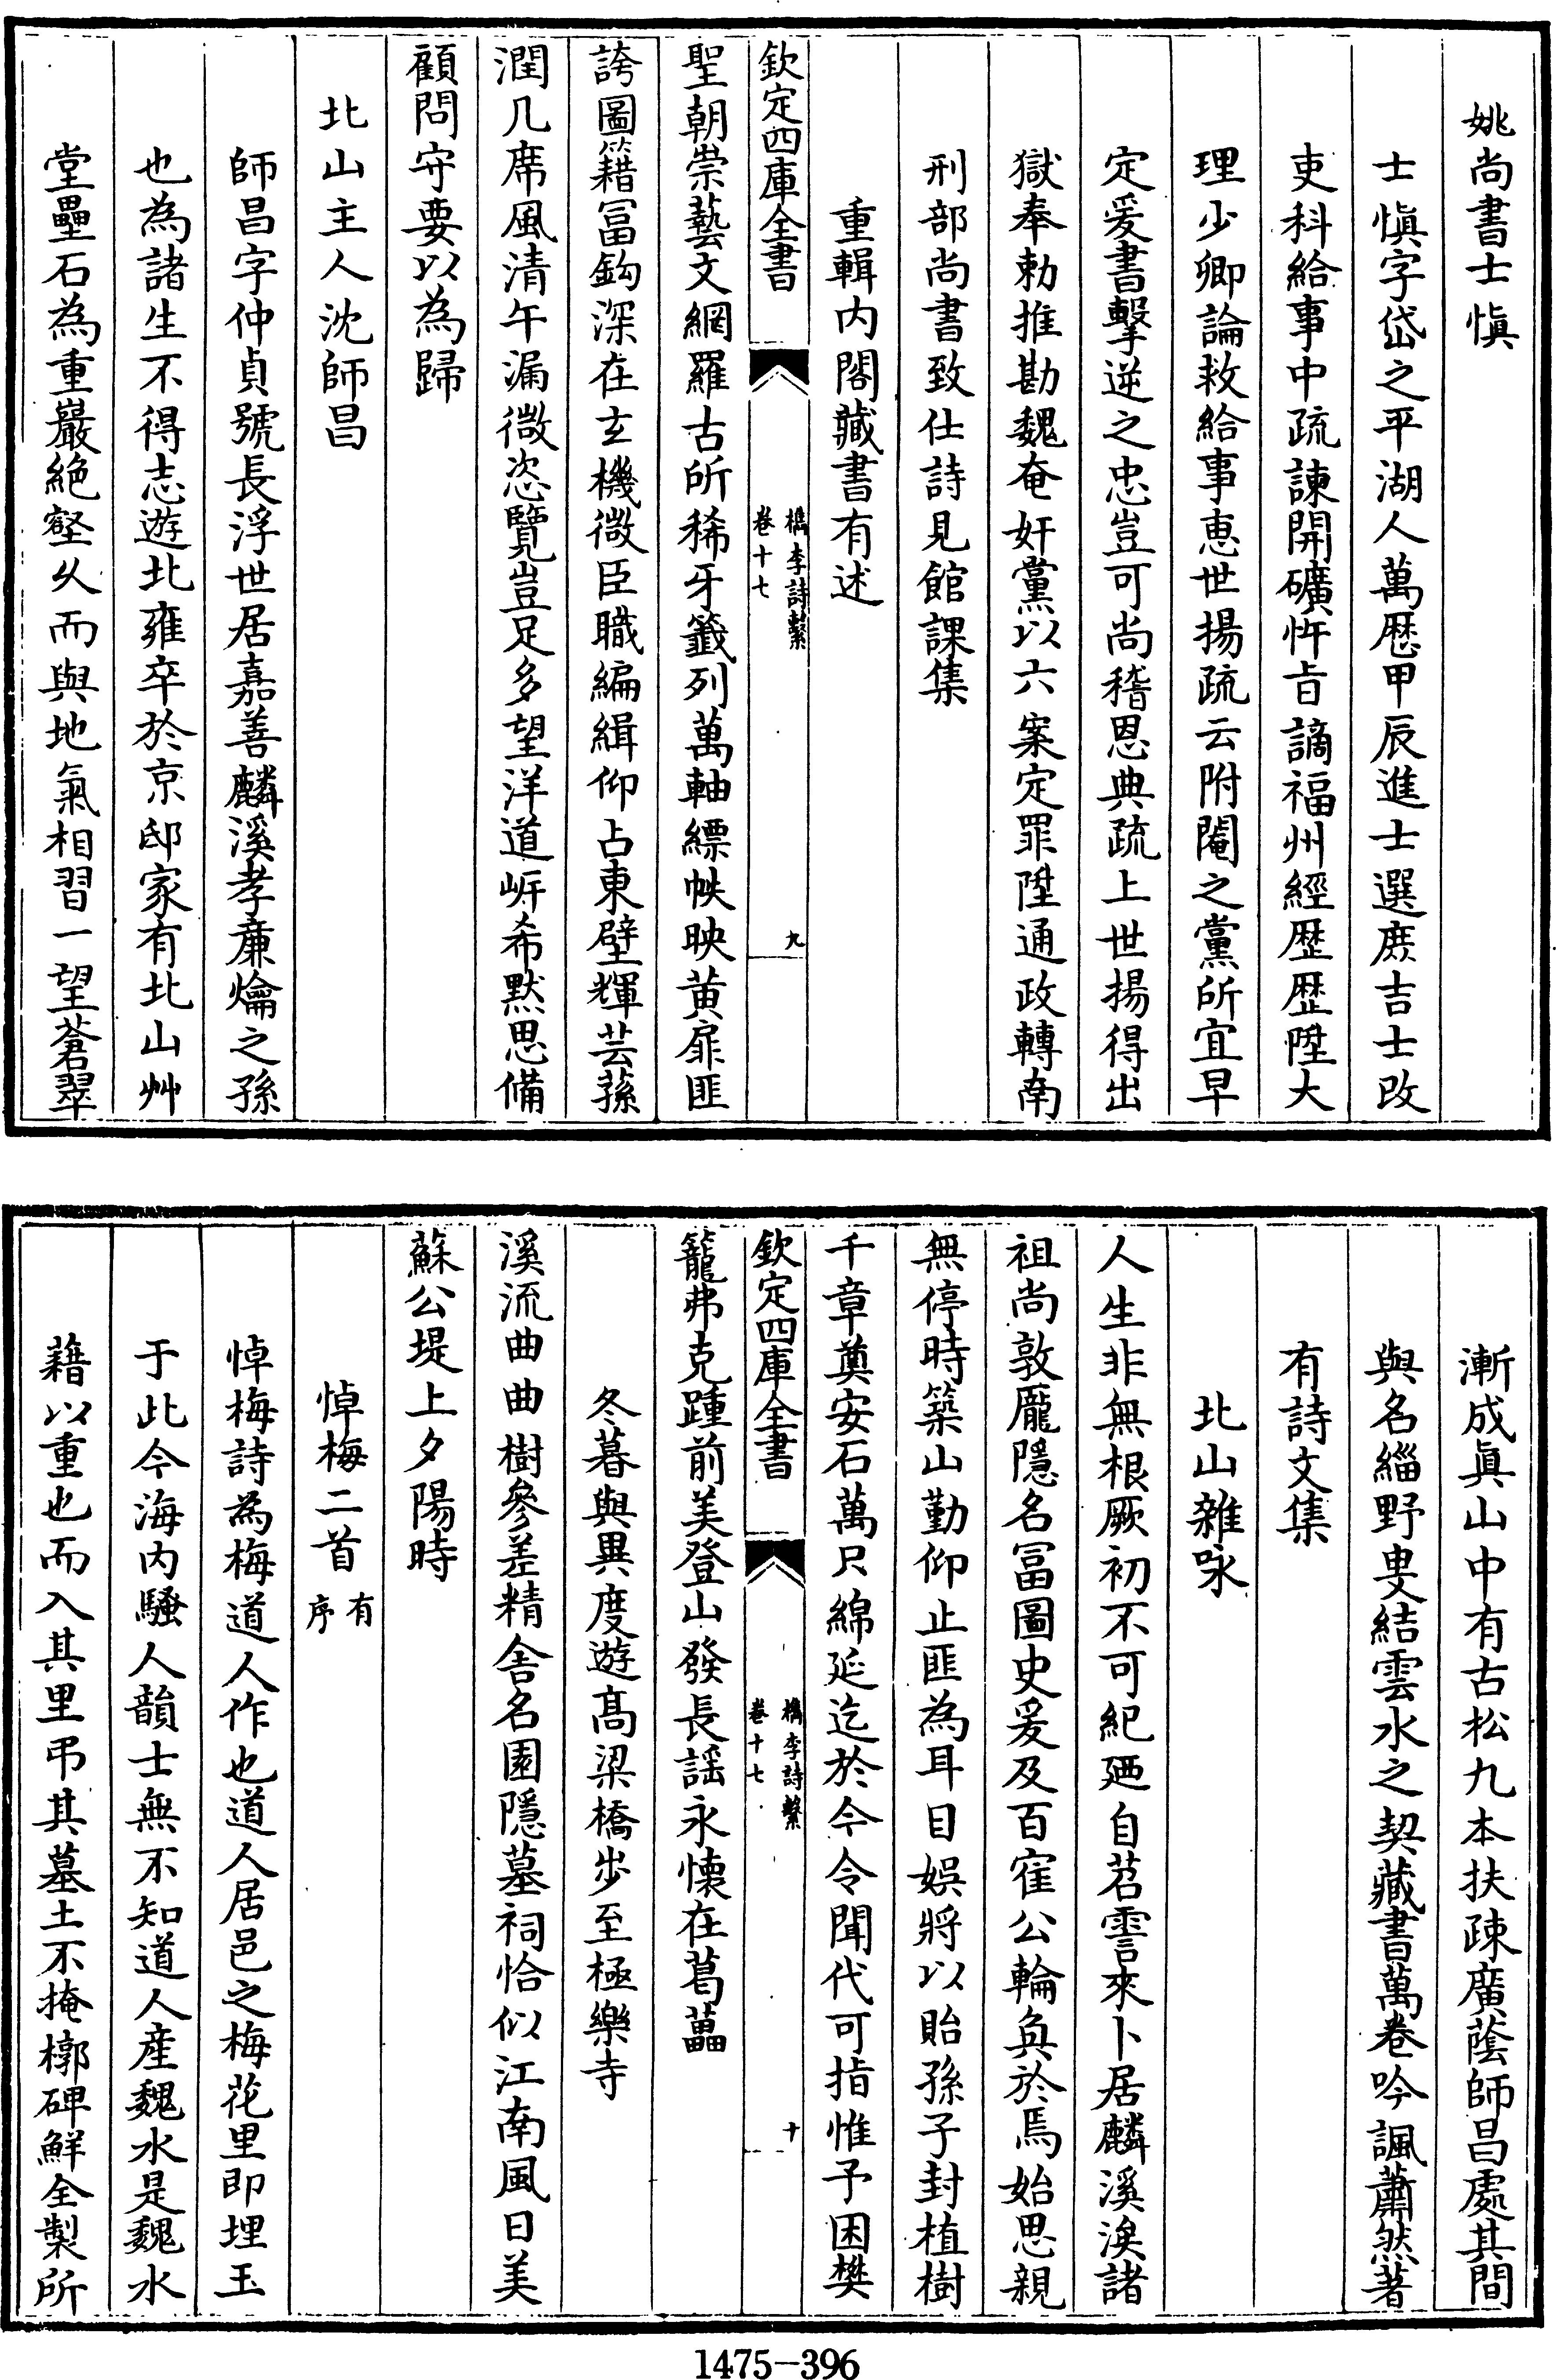 姚尚書士慎
士慎字岱之平湖人萬厯甲辰進士選庶吉士改
吏科給事中疏諫開礦忤㫖謫福州經歷歷陞大
理少卿論救給事惠世揚疏云附閹之黨所宜早
定爰書擊逆之忠豈可尚稽恩典疏上世揚得出
獄奉勅推勘魏奄奸黨以六案定罪陞通政轉南
刑部尚書致仕詩見館課集
重輯内閣藏書有述
欽定四庫全書
檇李詩繫
卷十七
九
聖朝崇藝文網羅古所稀牙籤列萬軸縹帙映黄扉匪
誇圖籍冨鈎深在玄機微臣職編緝仰占東壁輝芸蓀
潤几席風清午漏微恣覽豈足多望洋道㟁希黙思備
顧問守要以為歸
北山主人沈師昌
師昌字仲貞號長浮世居嘉善麟溪孝亷爚之孫
也為諸生不得志遊北雍卒於京邸家有北山艸
堂壘石為重巖絶壑乆而與地氣相習一望蒼翠
漸成眞山中有古松九本扶疎廣蔭師昌處其間
與名緇野叟結雲水之契藏書萬卷吟諷蕭然著
有詩文集
北山雜咏
人生非無根厥初不可紀廼自苕霅來卜居麟溪涘諸
祖尚敦龐隱名冨圖史爰及百寉公輪奐於焉始思親
無停時築山勤仰止匪為耳目娱將以貽孫子封植樹
千章奠安石萬只綿延迄於今令聞代可指惟予困樊
欽定四庫全書
檇李詩繫
卷十七
十
籠弗克踵前美登山發長謡永懐在葛藟
冬暮與異度遊髙梁橋步至極樂寺
溪流曲曲樹參差精舎名園隱墓祠恰似江南風日美
蘇公堤上夕陽時
悼梅二首有序
悼梅詩為梅道人作也道人居邑之梅花里即埋玉
于此今海内騷人韻士無不知道人産魏水是魏水
藉以重也而入其里弔其墓土不掩槨碑鮮全製所
1475-396